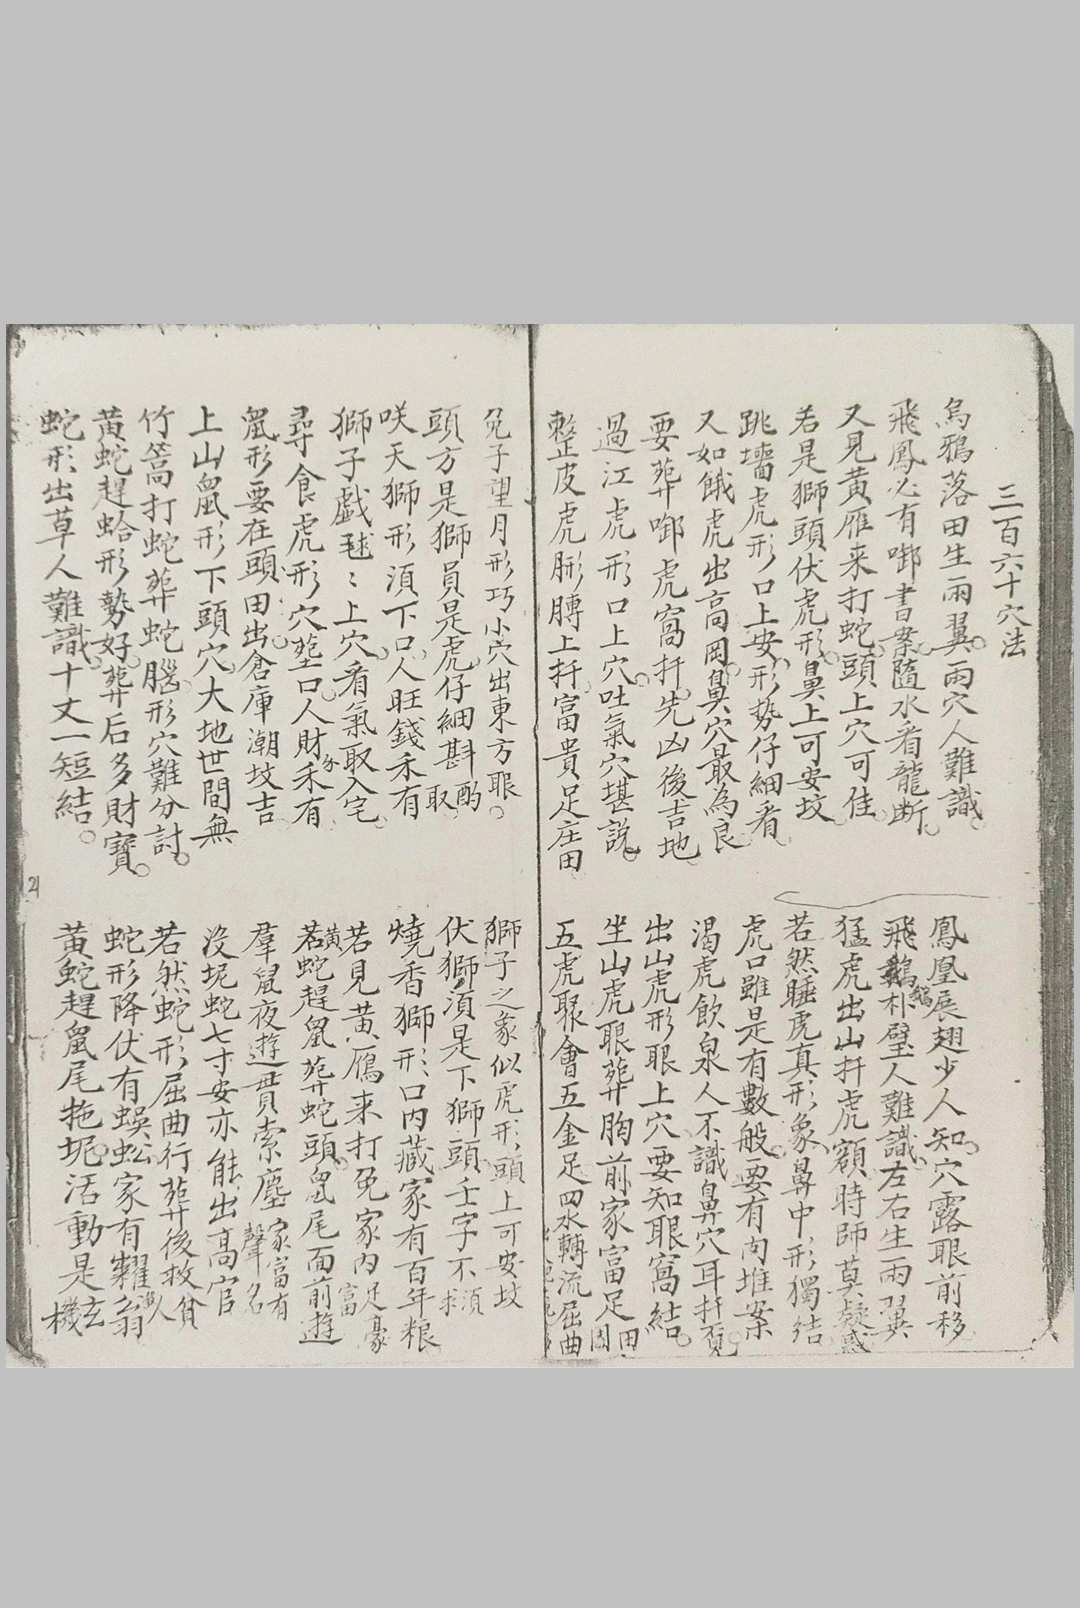 三百六十穴法
烏鴉落田生兩翼兩穴人難識
鳳凰展翅少人知穴露眼前移
飛鳳必有啣書案隨水看龍断
飛鵝朴壁人難識左右生兩翼
又見黃雁来打蛇頭上穴可佳
猛虎出山扦虎額時師莫疑惑
若是獅頭伏虎形鼻上可安坟
若然睡虎真形象鼻中形獨结
跳墻虎形口上安形势仔細看
虎口雖是有數般要有肉堆案
又如餓虎出高岡鼻穴最為良
渴虎飲泉人不識鼻穴耳扦覓
要葬啣虎窩扦先凶後吉地
出山虎形眼上穴要知眼窩結
過江虎形口上穴吐氣穴堪說
坐山虎眼葬胸前家富足田園
整皮虎形膊上扦富貴足庄田
五虎聚會五金足四水轉流屈曲
兔子望月形巧小穴出東方眼
獅子之象似虎形頭上可安坟
頭方是獅員是虎仔細斟酌取
伏獅須是下獅頭壬字不須求
咲天獅形須下口人旺錢禾有
燒香獅形口内藏家有百年粮
獅子戲毬毬上穴看氣取入宅
若見黃鴈来打兔家内足富豪
尋食虎形穴塟口人財禾有
若黃蛇趕鼠葬蛇頭鼠尾面前遊
鼠形要在頭田出倉庫潮坟吉
羣鼠夜遊貫索塵家富有聲名
上山鼠形下頭穴大地世間無
沒坭蛇七寸安亦能出高官
竹篙打蛇葬蛇腦形穴難分討
若然蛇形屈曲行葬後救貧人
黃蛇趕蛤形勢好葬后多財寶
蛇形降伏有蜈蚣家有糶翁
蛇形出草人難識十丈一短結
黃蛇趕鼠尾拖坭活動是玄機
21